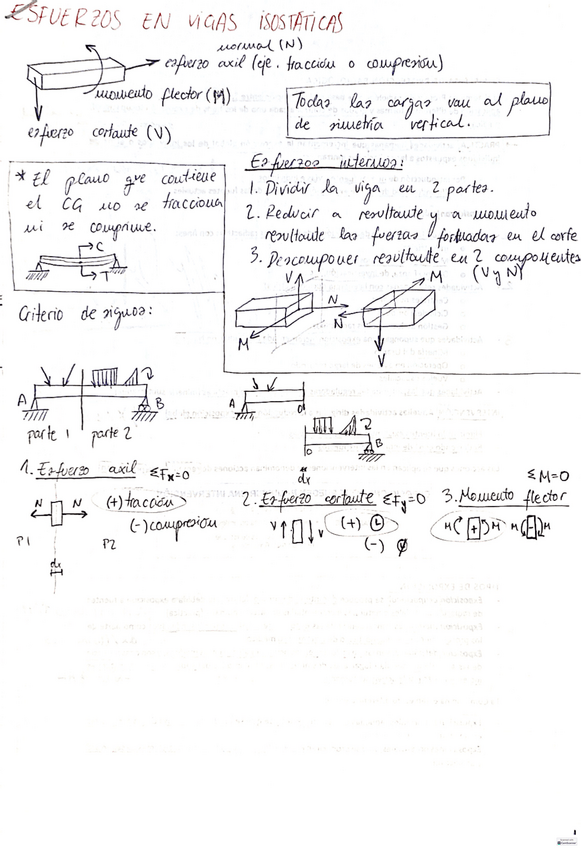 ESFUERZOS EN VIGAS ISOSTÁTICAS
normal (N)
esfuerzo axil (eje. tracción o compresión)
momento flector (M)
esfuerzo cortante (V)
Todas las cargas van al plano
de simetría vertical.
* El plano que contiene
el CG no se tracciona
ni se comprime.
C
T
Esfuerzos internos:
1. Dividir la viga en 2 partes.
2. Reducir a resultante y a momento
resultante las fuerzas formadas en el corte
3. Descomponer resultante en 2 componentes
(V y N)
V
N
M
M
N
V
Criterio de signos:
A
B
parte 1
parte 2
A
O
O
B
dx
1. Esfuerzo axil ΣFx=0
N
N
(+) tracción
(-) compresión
P1
P2
dx
2. Esfuerzo cortante ΣFy=0
V
V
(+)
(-)
ΣM=0
3. Momento flector
M
+
M
M
-
M